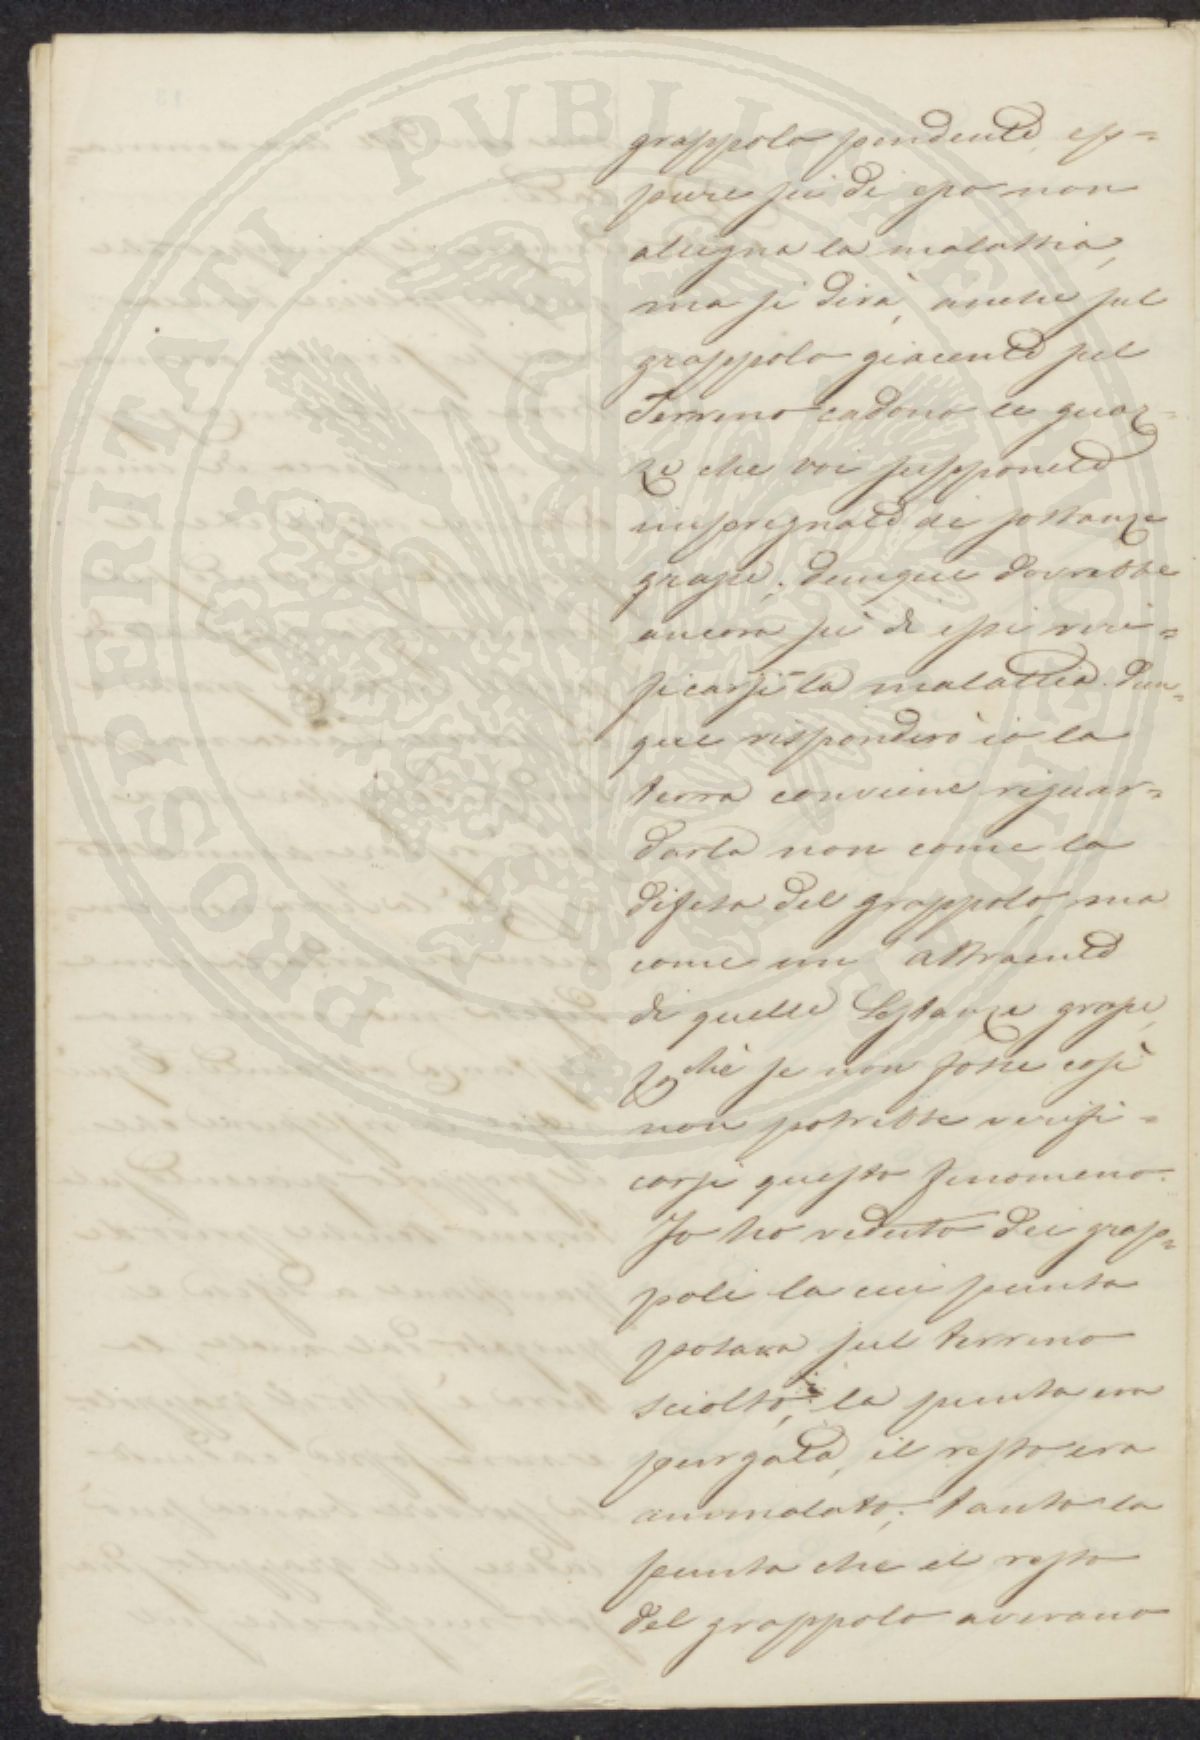 grappolo pendente, ep=
pure su di esso non
alligna la malattia,
ma si dirà, anche sul
grappolo giacente sul
Terreno cadono le guaz=
ze che voi supponete
impregnate di sostanze
grasse; dunque dovrebbe
ancora su di essi veri=
ficarsi la malattia. Dun=
que risponderò io la
terra conviene riguar=
darla non come la
difesa del grappolo, ma
come un attraente
di quelle Sostanze grasse,
pchè se non fosse così
non potrebbe verifi=
carsi questo fenomeno.
Io ho veduto dei grap=
poli la cui punta
posava sul terreno
sciolto; la punta era
purgata, il resto era
ammalato; tanto la
punta che il resto
del grappolo avevano
PROSPERITATI PVBLICAE